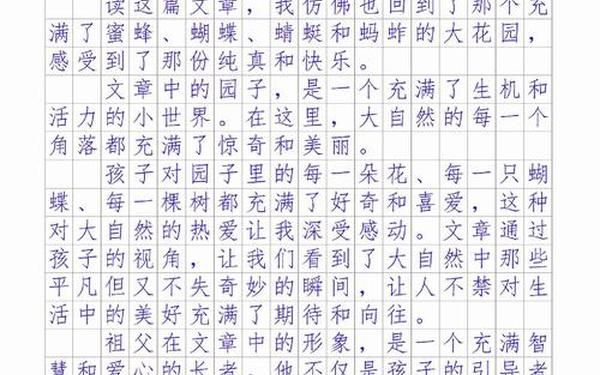 读这篇文章，我仿佛也回到了那个充
满了蜜蜂、蝴蝶、蜻蜓和蚂蚱的大花园，
感受到了那份纯真和快乐。
文章中的园子，是一个充满了生机和
活力的小世界。在这里，大自然的每一个
角落都充满了惊奇和美丽。
孩子对园子里的每一朵花、每一只蝴
蝶、每一棵树都充满了好奇和喜爱，这种
对大自然的热爱让我深受感动。文章通过
孩子的视角，让我们看到了大自然中那些
平凡但又不失奇妙的瞬间，让人不禁对生
活中的美好充满了期待和向往。
祖父在文章中的形象，是一个充满智
慧和爱心的长者。他不仅是孩子的引导者